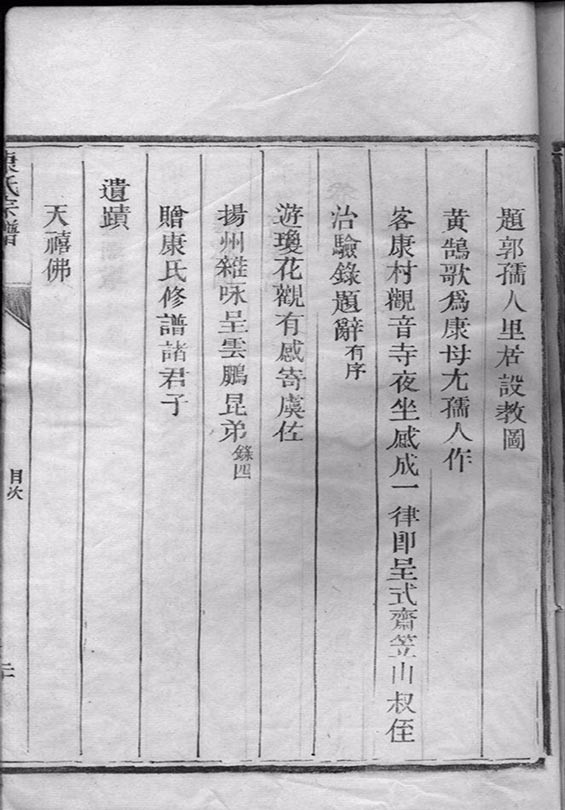 題郭孺人里居設教圖
黃鵠歌爲康母尤孺人作
客康村觀音寺夜坐感成一律卽呈式齋笠山叔侄
治驗錄題辭有序
游瓊花觀有感寄虞佐
揚州雜咏呈雲鵬昆弟錄四
贈康氏修譜諸君子
遺蹟
天禧佛
康氏宗譜
目次